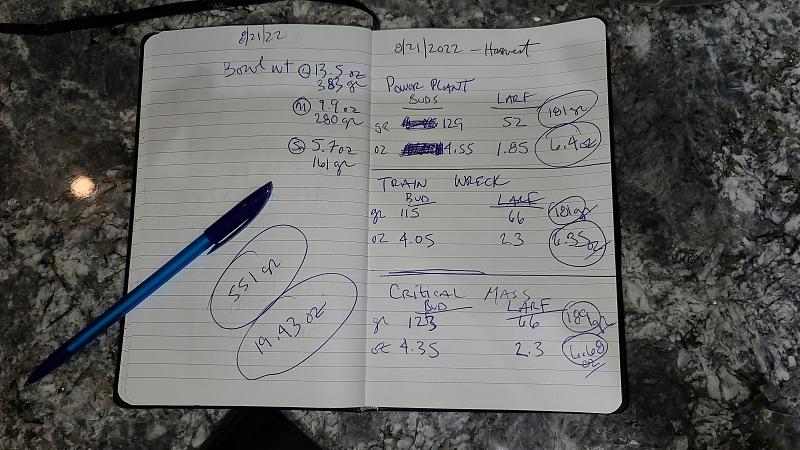 8/21/22
Bowl wt L 13.5 oz
383 gr
M 9.9 oz
280 gr
S 5.7 oz
161 gr
551 gr
19.43 oz
8/21/2022 - Harvest
POWER PLANT
BUDS LARF
gr 129 52 181 gr
oz 4.55 1.85 6.4 oz
TRAIN WRECK
BUD LARF
gr 115 66 181 gr
oz 4.05 2.3 6.35 oz
CRITICAL MASS
BUD LARF
gr 123 66 189 gr
oz 4.35 2.3 6.68 oz